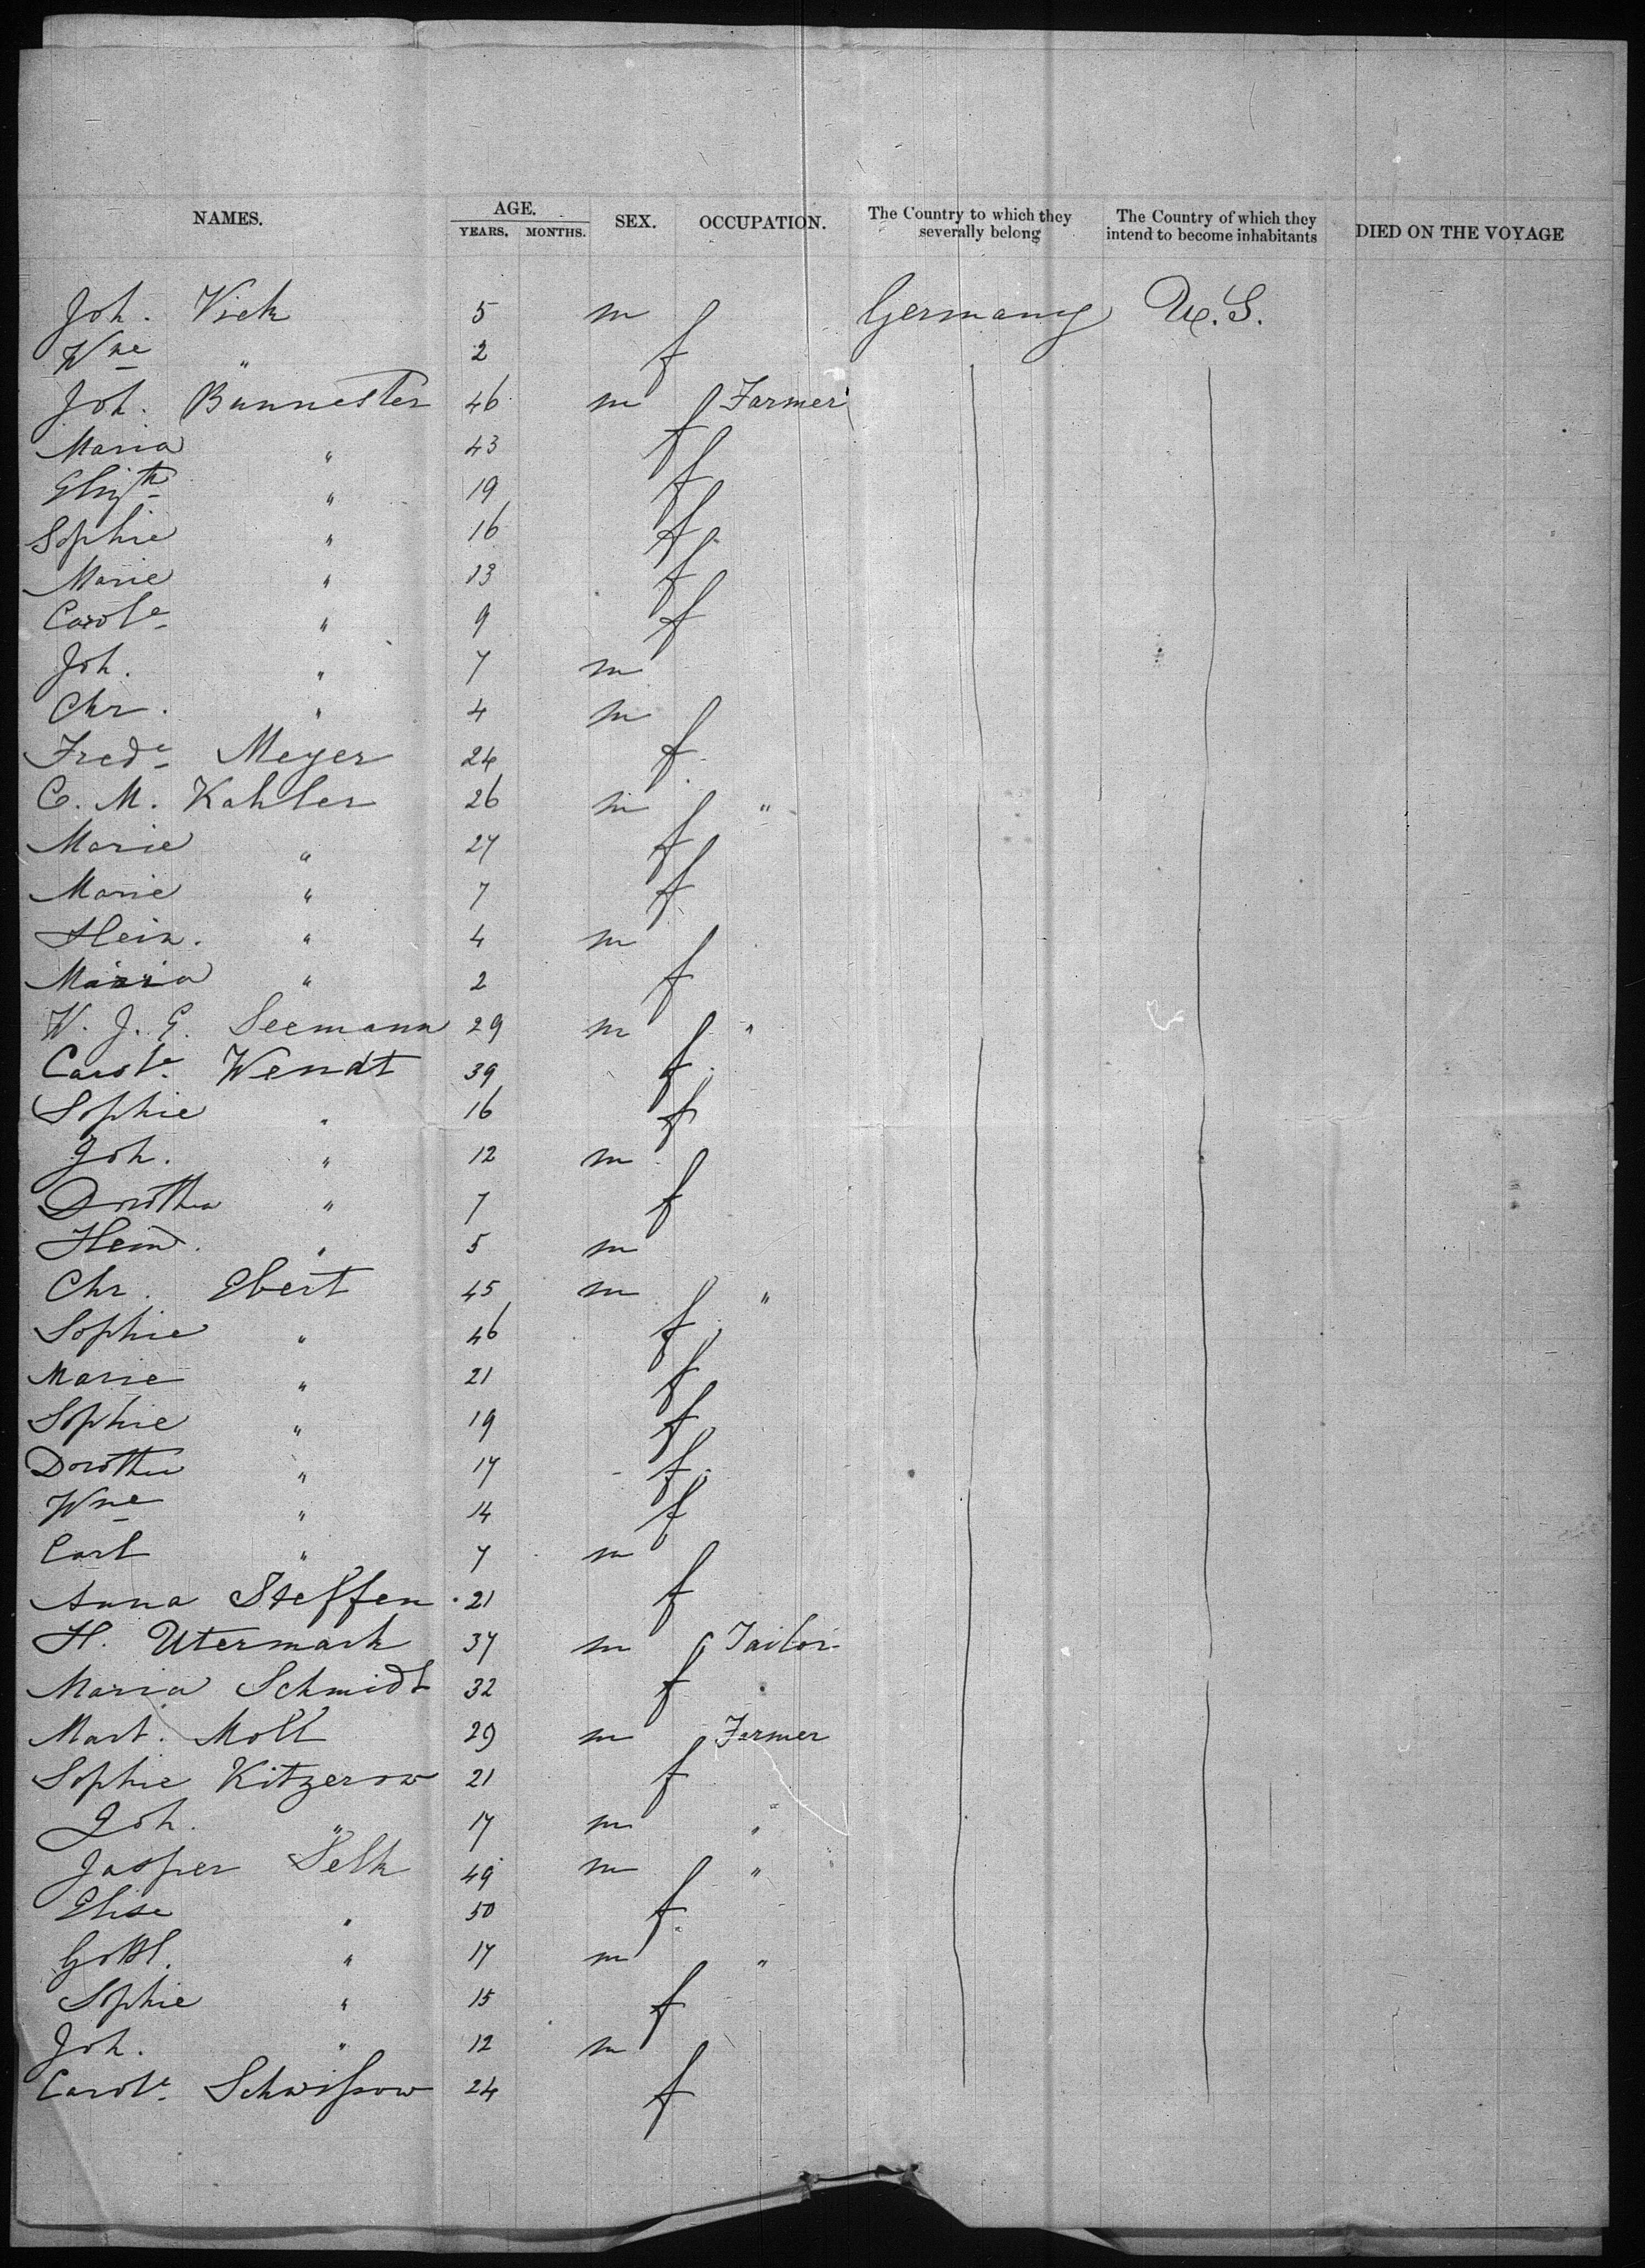 NAMES. AGE. YEARS. MONTHS. SEX. OCCUPATION. The Country to which they severally belong The Country of which they intend to become inhabitants DIED ON THE VOYAGE
Joh. Vick 5 m Germany U.S.
Wne " 2 f
Joh. Bunnester 46 m Farmer
Maria " 43 f
Elisth " 19 f
Sophie " 16 f
Marie " 13 f
Carole " 9 f
Joh. " 7 m
Chr. " 4 m
Frede Meyer 24 f
C. M. Kahler 26 m "
Marie " 27 f
Marie " 7 f
Hein. " 4 m
Maria " 2 f
W. J. G. Seemann 29 m "
Carole Wendt 39 f
Sophie " 16 f
Joh. " 12 m
Dorothea " 7 f
Hein. " 5 m
Chr. Ebert 45 m "
Sophie " 46 f
Marie " 21 f
Sophie " 19 f
Dorothea " 17 f
Wne " 14 f
Carl " 7 m
Anna Steffen 21 f
H. Utermark 37 m Tailor
Maria Schmidt 32 f
Mart. Moll 29 m Farmer
Sophie Kitzerow 21 f
Joh. " 17 m "
Jasper Selk 49 m "
Elise " 50 f
Gottl. " 17 m "
Sophie " 15 f
Joh. " 12 m
Carole Schwißow 24 f